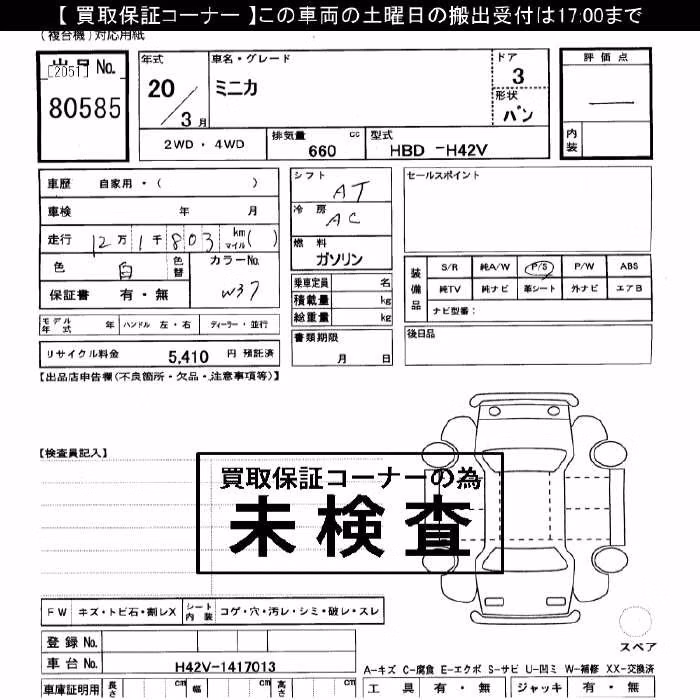 【 買取保証コーナー 】この車両の土曜日の搬出受付は17:00まで
(複合機)対応用紙
出品 No.
[2051]
80585
年式
20／3月
車名・グレード
ミニカ
ドア
3
形状
バン
2WD・4WD
排気量 cc
660
型式
HBD -H42V
評価点
内装
車歴 自家用・( )
車検 年 月
走行 12万1千803 km マイル( )
色 白 色替
カラーNo.
W37
保証書 有・無
モデル年式 年 ハンドル 左・右 ディーラー・並行
リサイクル料金 5,410 円 預託済
シフト
AT
冷房
AC
燃料
ガソリン
乗車定員 名
積載量 kg
総重量 kg
書類期限
月 日
セールスポイント
装備品
S/R 純A/W P/S P/W ABS
純TV 純ナビ 革シート 外ナビ エアB
ナビ型番：
後日品
【出品店申告欄(不良箇所・欠品・注意事項等)】
【検査員記入】
買取保証コーナーの為
未検査
FW キズ・トビ石・割レX シート内装 コゲ・穴・汚レ・シミ・破レ・スレ
登録 No.
車台 No. H42V-1417013
車庫証明用 長さ cm 幅 cm 高さ cm
スペア
A-キズ C-腐食 E-エクボ S-サビ U-凹ミ W-補修 XX-交換済
工具 有・無 ジャッキ 有・無